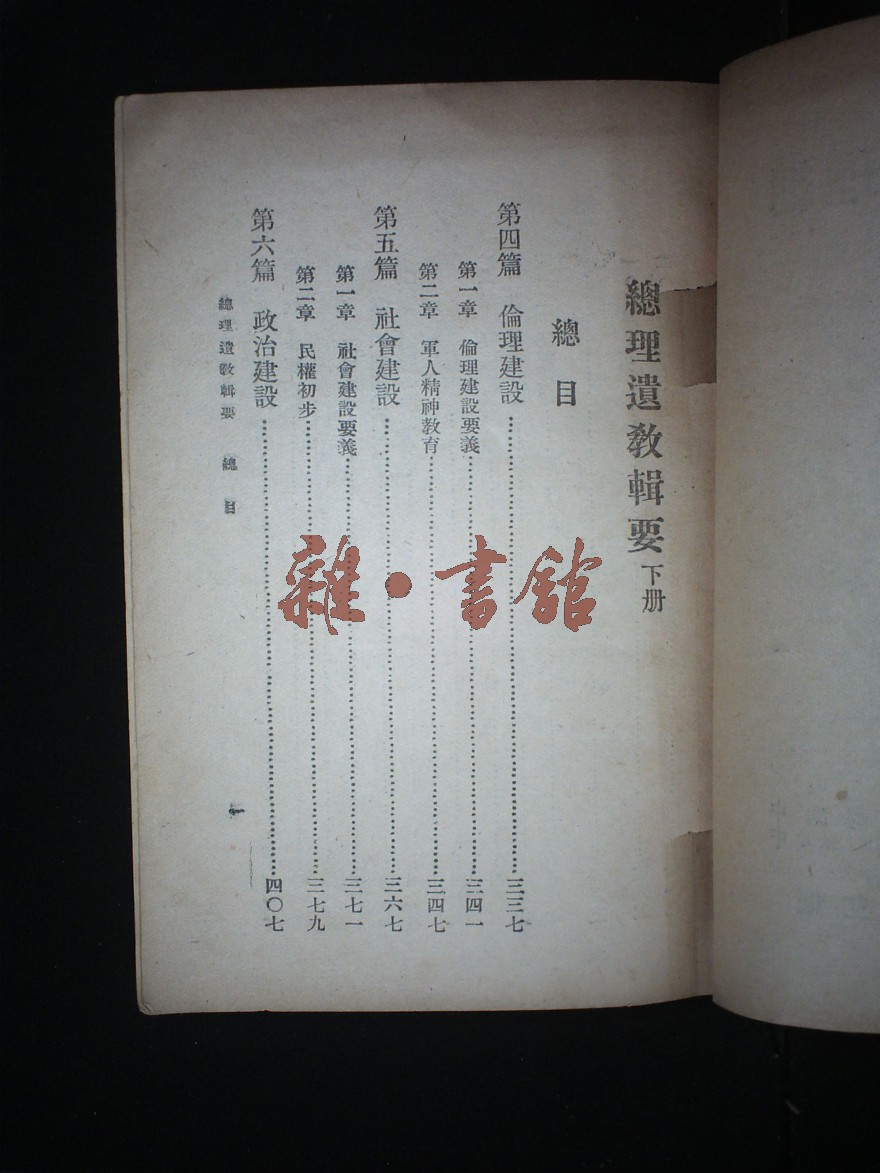 總理遺教輯要 下册
總目
第四篇 倫理建設……三三七
第一章 倫理建設要義……三四一
第二章 軍人精神教育……三四七
第五篇 社會建設……三六七
第一章 社會建設要義……三七一
第二章 民權初步……三七九
第六篇 政治建設……四〇七
總理遺教輯要 總目 一
雜·書館